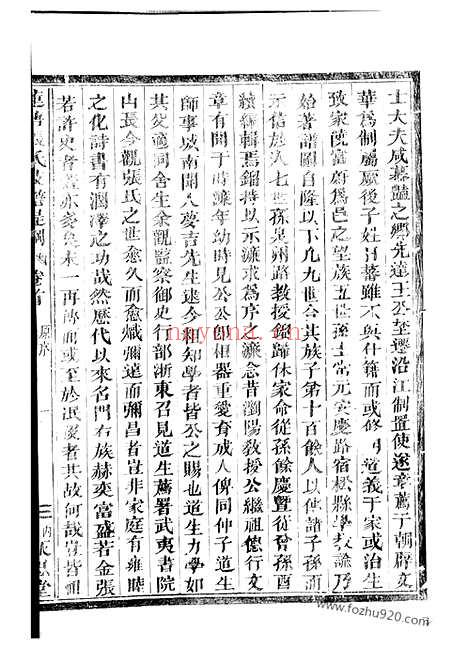 士大夫咸慕豔之鄉先達王公至遷沿江制置使遂章薦于朝辟文
華為制屬厥後子姓日蕃雖不與仕籍而或修道義于家或治生
致家饒富蔚為邑之望族五世孫士常元安慶路宿松縣學教諭乃
始著譜圖自隆以下凡九世合其族子第十百餘人以俾諸子孫而
示舊加入七世孫泉州路教授銀歸休家命從孫餘慶暨從曾孫酉
續編輯焉錮持以示濂求為序濂念昔瀏陽教授公繼祖德行文
章有聞于時濂年幼時見公公即相器重愛育成人俾同仲子道生
師事城南聞人夢吉先生迄今粗知學者皆公之賜也道生力學如
其父適同舍生余觀監察御史行部浙東召見道生薦署武夷書院
山長今觀張氏之世愈久而愈熾彌遠而彌昌者豈非家庭有雍睦
之化詩書有潤澤之功哉然歷代以來名門右族赫奕富盛若金張
若許史者豈亦不再傳而或至於泯沒者其故何哉豈皆
張氏譜卷首 原序
www.fozhu920.com